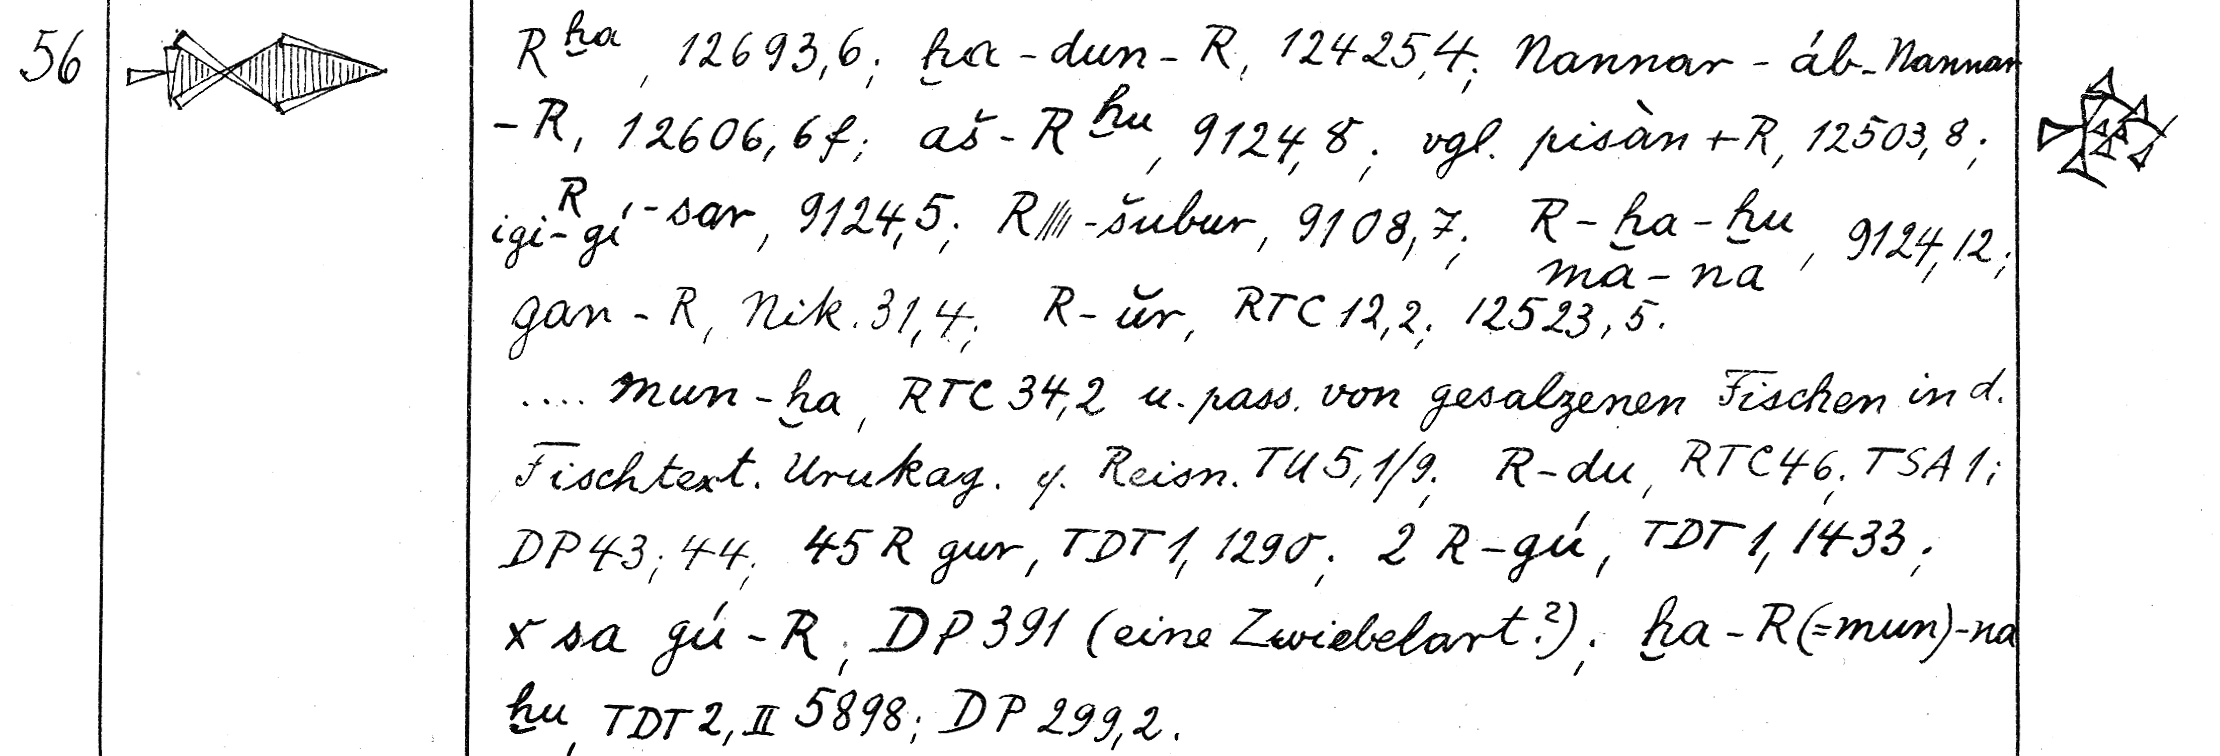 56 R ḫa, 12693,6; ḫa-dun-R, 12425,4; Nannar-áb-Nannar
-R, 12606,6f; aš-R ḫu, 9124,8; vgl. pisàn+R, 12503,8;
igi-R-gí-sar, 9124,5; R////-šubur, 9108,7; R-ḫa-ḫu, 9124,12;
mā-na
gan-R, Nik. 31,4; R-ŭr, RTC 12,2; 12523,5.
.... mun-ḫa, RTC 34,2 u. pass. von gesalzenen Fischen in d.
Fischtext. Urukag. y. Reisn. TU 5,1/9; R-du, RTC 46; TSA 1;
DP 43; 44; 45 R gur, TDT 1, 1290; 2 R-gú, TDT 1, 1433;
x sa gú-R; DP 391 (eine Zwiebelart?); ḫa-R(=mun)-na
ḫu, TDT 2, II 5898; DP 299,2.